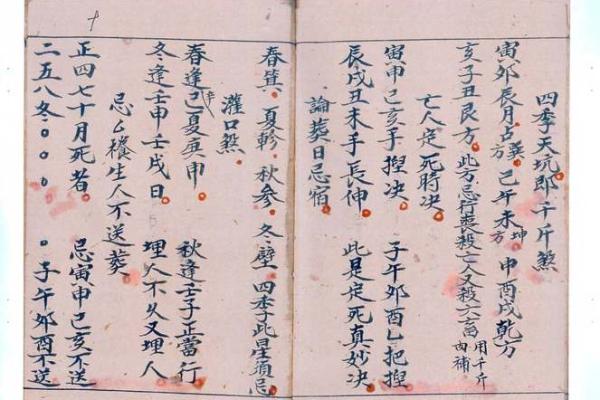 四季天坑即千斤煞
寅卯辰月占巽方 己午未坤方 申酉戌乾方
亥子丑艮方。此方忌行喪殺亡人又殺六畜 用千斤 補
亡人定死時决
寅申己亥手揑决 子午卯酉 把揑
辰戌丑未手長伸 此是定死真妙决
論葬日忌宿
春箕。夏軫。秋参。冬壁。四季此星須忌
灌口煞
春逢己 夏庚申 秋逢壬子正當行
冬逢壬申壬戌日 埋人不久又埋人
忌 生人不送葬
正四七十月死者。忌寅申己亥不送
二五八冬。。。。子午卯酉不送